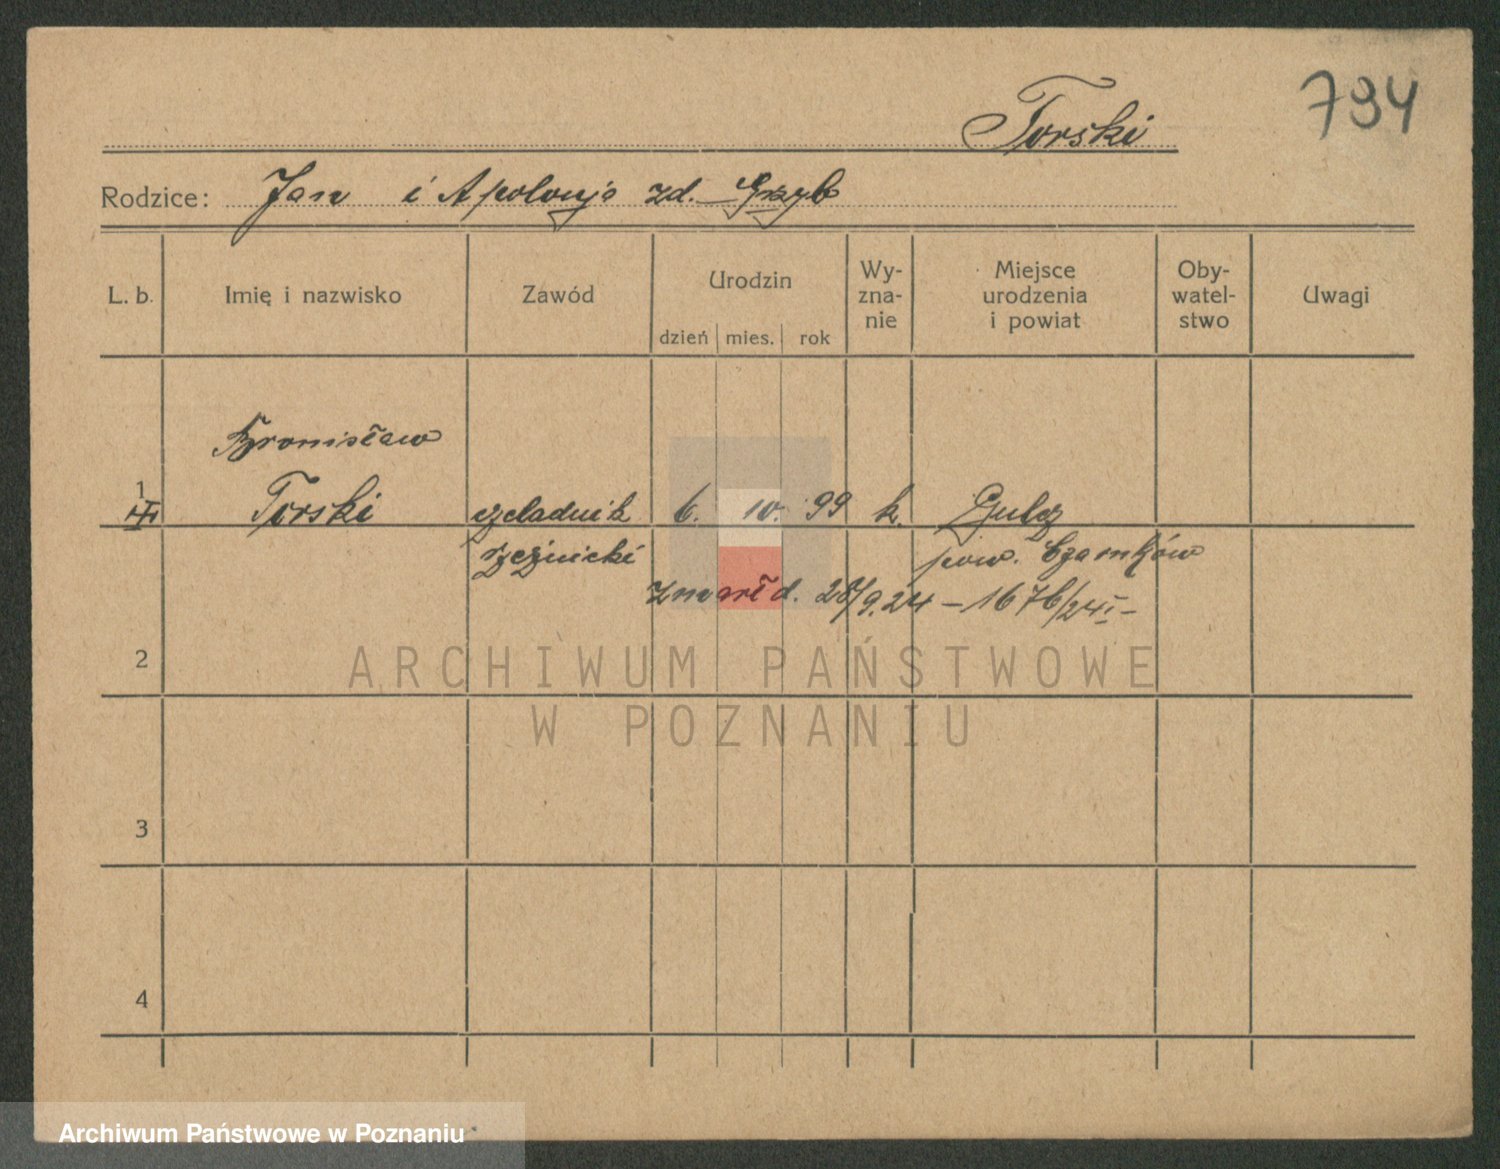 794
Torski
Rodzice: Jan i Apolonja zd. Grzyb
L. b. Imię i nazwisko Zawód Urodzin Wy-zna-nie Miejsce urodzenia i powiat Oby-watel-stwo Uwagi
dzień mies. rok
Bronisław
1 Torski czeladnik 6. 10. 99 k. Gulcz
III rzeźnicki pow. Czarnków
zmarł d. 28/9.24 – 1676/24 I –
2
3
4
ARCHIWUM PAŃSTWOWE
W POZNANIU
Archiwum Państwowe w Poznaniu